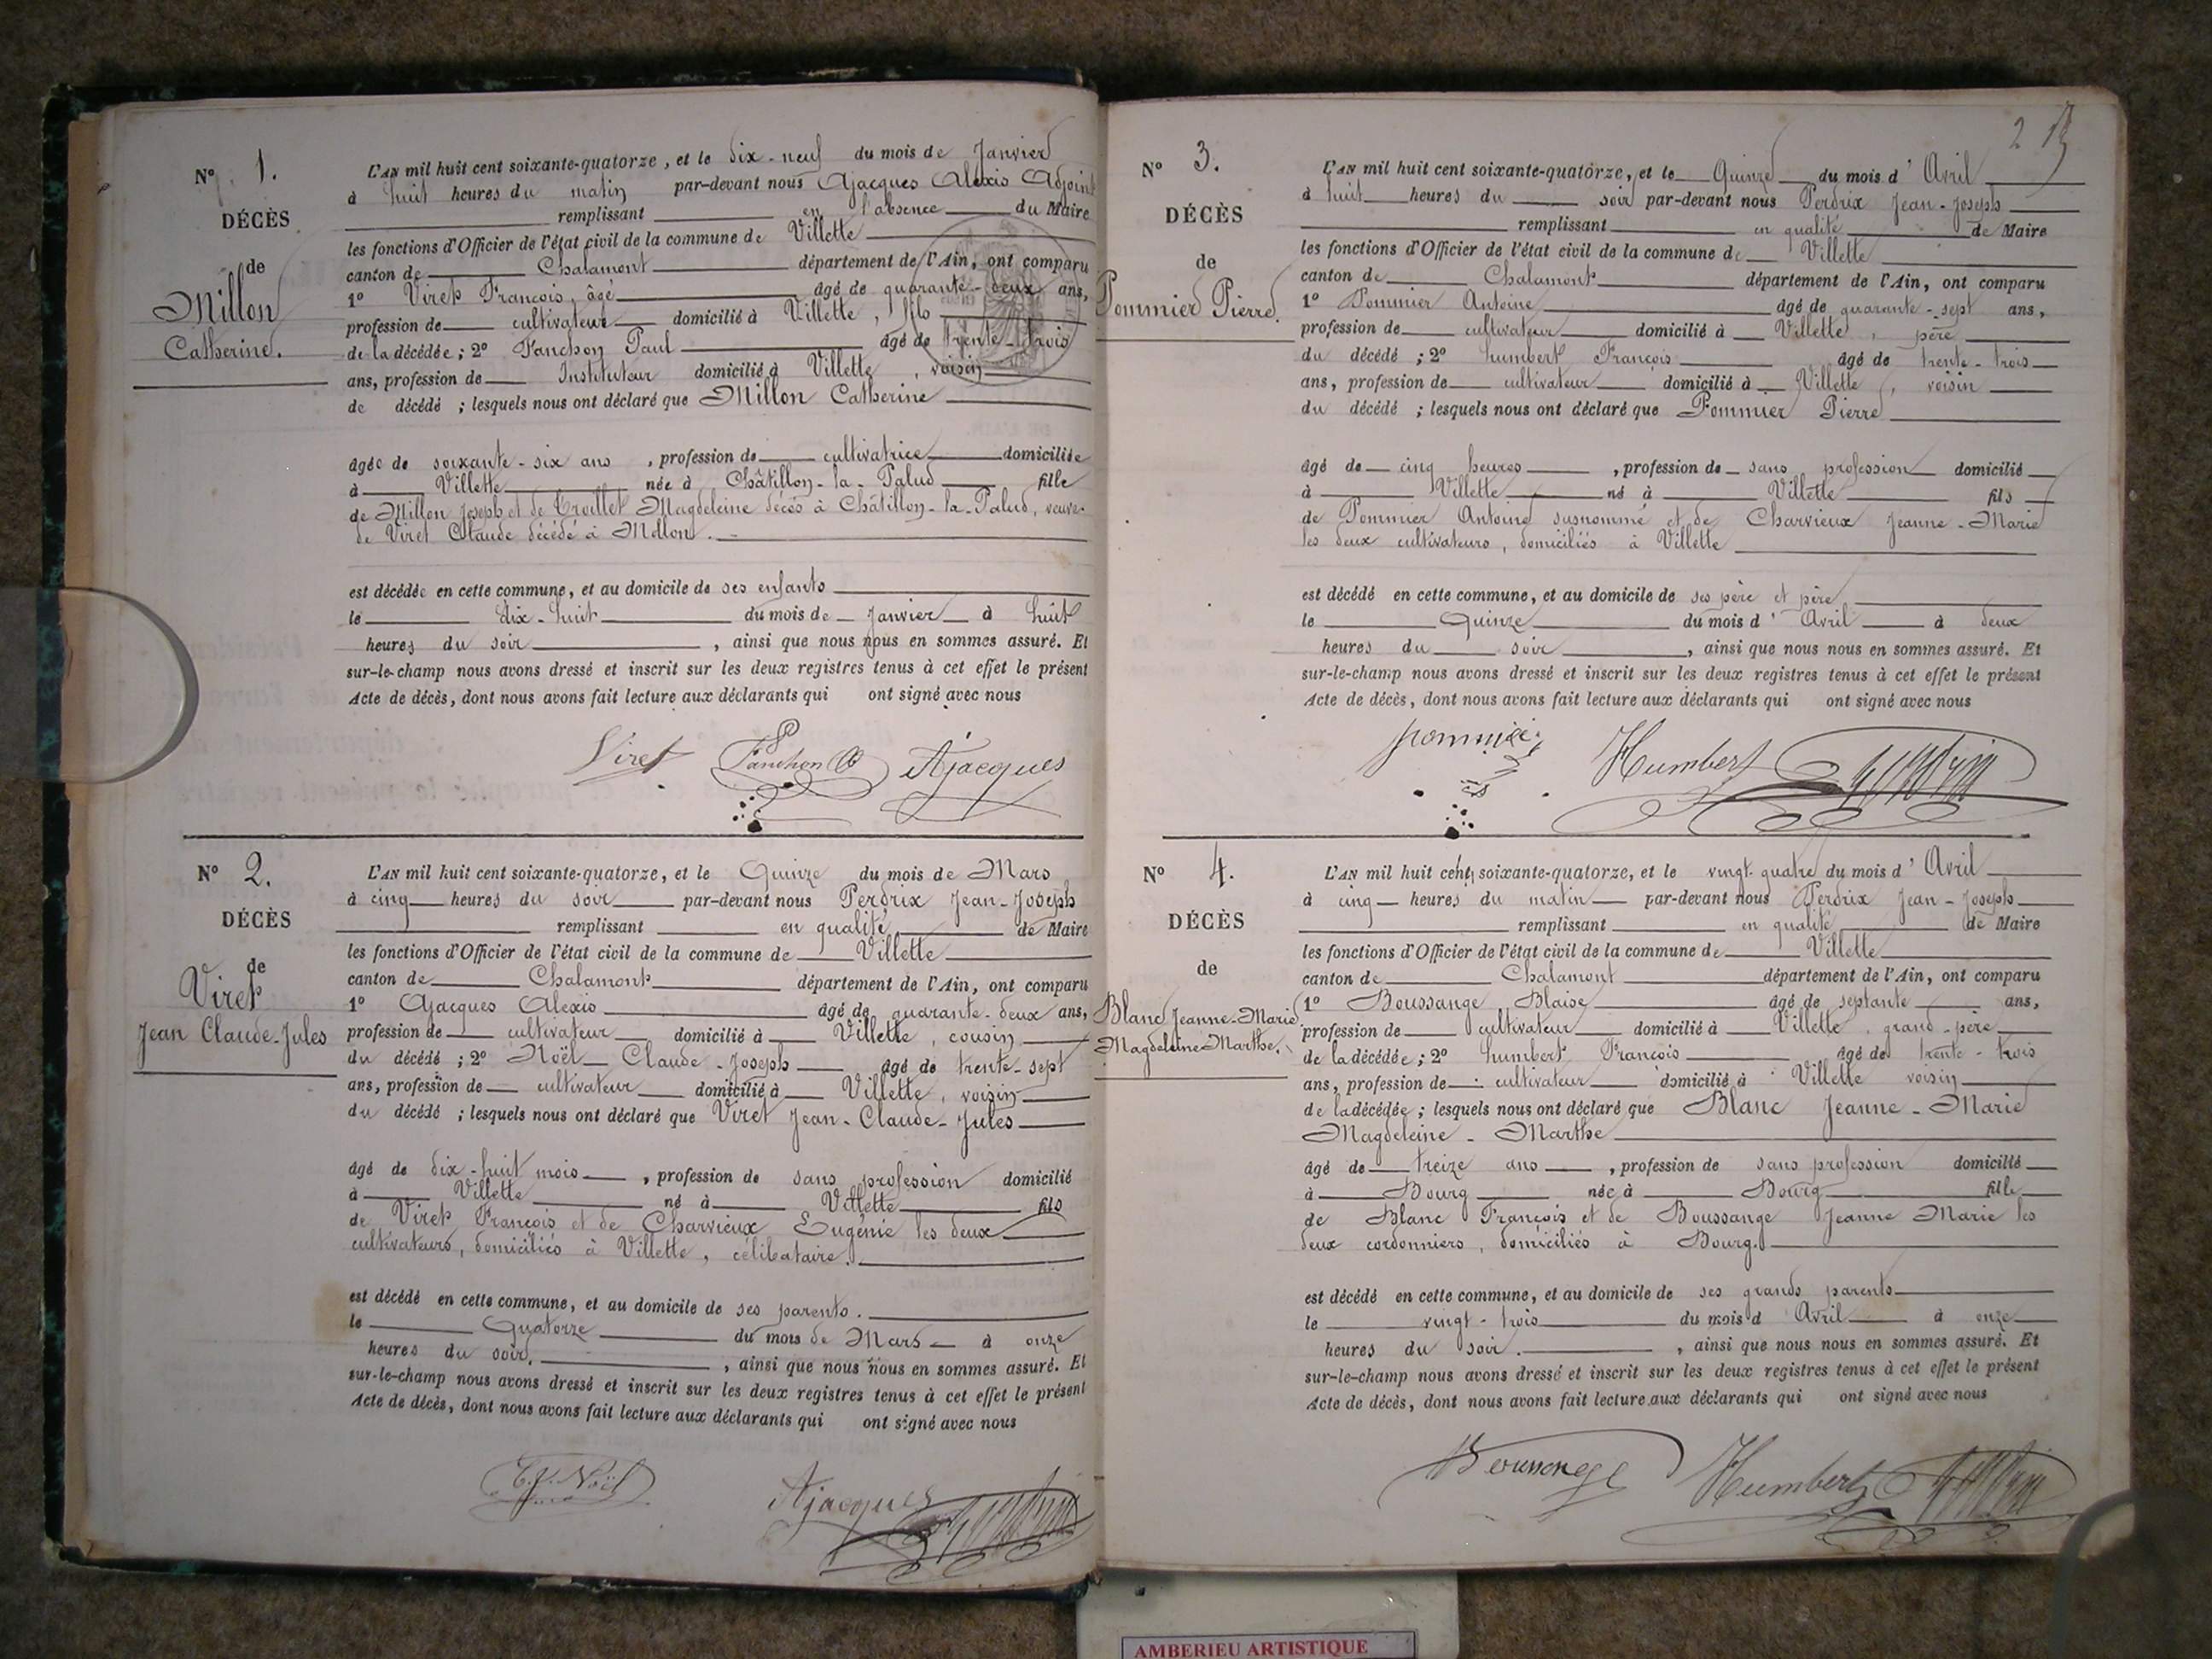 Nº 1.
DÉCÈS
de
Millon
Catherine.
L'AN mil huit cent soixante-quatorze, et le dix-neuf du mois de Janvier
à huit heures du matin par-devant nous Ajacques Alexis Adjoint
remplissant en l'absence du Maire
les fonctions d'Officier de l'état civil de la commune de Villette
canton de Chalamont département de l'Ain, ont comparu
1º Viret François, âgé âgé de quarante-deux ans,
profession de cultivateur domicilié à Villette, fils
de la décédée; 2º Panchon Paul âgé de trente-trois
ans, profession de Instituteur domicilié à Villette, voisin
de décédé ; lesquels nous ont déclaré que Millon Catherine
âgée de soixante-six ans, profession de cultivatrice domiciliée
à Villette née à Châtillon-la-Palud fille
de Millon Joseph et de Trollet Magdeleine décés à Châtillon-la-Palud, veuve
de Viret Claude décédé à Mollon.
est décédée en cette commune, et au domicile de ses enfants
le dix-huit du mois de Janvier à huit
heures du soir, ainsi que nous nous en sommes assuré. Et
sur-le-champ nous avons dressé et inscrit sur les deux registres tenus à cet effet le présent
Acte de décès, dont nous avons fait lecture aux déclarants qui ont signé avec nous
Viret Panchon Ajacques
Nº 2.
DÉCÈS
de
Viret
Jean Claude-Jules
L'AN mil huit cent soixante-quatorze, et le Quinze du mois de Mars
à cinq heures du soir par-devant nous Perdrix Jean-Joseph
remplissant en qualité de Maire
les fonctions d'Officier de l'état civil de la commune de Villette
canton de Chalamont département de l'Ain, ont comparu
1º Ajacques Alexis âgé de quarante-deux ans,
profession de cultivateur domicilié à Villette, cousin
du décédé; 2º Noël Claude-Joseph âgé de trente-sept
ans, profession de cultivateur domicilié à Villette, voisin
du décédé ; lesquels nous ont déclaré que Viret Jean-Claude-Jules
âgé de dix-huit mois, profession de sans profession domicilié
à Villette né à Villette fils
de Viret François et de Charvieux Eugénie les deux
cultivateurs, domiciliés à Villette, célibataire.
est décédé en cette commune, et au domicile de ses parents.
le Quatorze du mois de Mars à onze
heures du soir, ainsi que nous nous en sommes assuré. Et
sur-le-champ nous avons dressé et inscrit sur les deux registres tenus à cet effet le présent
Acte de décès, dont nous avons fait lecture aux déclarants qui ont signé avec nous
C.J. Noël Ajacques
2
Nº 3.
DÉCÈS
de
Pommier Pierre.
L'AN mil huit cent soixante-quatorze, et le Quinze du mois d'Avril
à huit heures du soir par-devant nous Perdrix Jean-Joseph
remplissant en qualité de Maire
les fonctions d'Officier de l'état civil de la commune de Villette
canton de Chalamont département de l'Ain, ont comparu
1º Pommier Antoine âgé de quarante-sept ans,
profession de cultivateur domicilié à Villette, père
du décédé ; 2º humbert François âgé de trente-trois
ans, profession de cultivateur domicilié à Villette, voisin
du décédé ; lesquels nous ont déclaré que Pommier Pierre
âgé de cinq heures, profession de sans profession domicilié
à Villette né à Villette fils
de Pommier Antoine susnommé et de Charvieux Jeanne-Marie
les deux cultivateurs, domiciliés à Villette
est décédé en cette commune, et au domicile de ses père et père
le Quinze du mois d'Avril à deux
heures du soir, ainsi que nous nous en sommes assuré. Et
sur-le-champ nous avons dressé et inscrit sur les deux registres tenus à cet effet le présent
Acte de décès, dont nous avons fait lecture aux déclarants qui ont signé avec nous
pommier Humbert
Nº 4.
DÉCÈS
de
Blanc Jeanne-Marie
Magdeleine-Marthe.
L'AN mil huit cent soixante-quatorze, et le vingt-quatre du mois d'Avril
à cinq heures du matin par-devant nous Perdrix Jean-Joseph
remplissant en qualité de Maire
les fonctions d'Officier de l'état civil de la commune de Villette
canton de Chalamont département de l'Ain, ont comparu
1º Boussange Blaise âgé de septante ans,
profession de cultivateur domicilié à Villette, grand-père
de la décédée; 2º humbert François âgé de trente-trois
ans, profession de cultivateur domicilié à Villette voisin
de la décédée ; lesquels nous ont déclaré que Blanc Jeanne-Marie
Magdeleine-Marthe
âgé de treize ans, profession de sans profession domicilié
à Bourg née à Bourg fille
de Blanc François et de Boussange Jeanne Marie les
deux cordonniers, domiciliés à Bourg.
est décédé en cette commune, et au domicile de ses grands parents
le vingt-trois du mois d'Avril à onze
heures du soir., ainsi que nous nous en sommes assuré. Et
sur-le-champ nous avons dressé et inscrit sur les deux registres tenus à cet effet le présent
Acte de décès, dont nous avons fait lecture aux déclarants qui ont signé avec nous
Boussange Humbert
AMBERIEU ARTISTIQUE